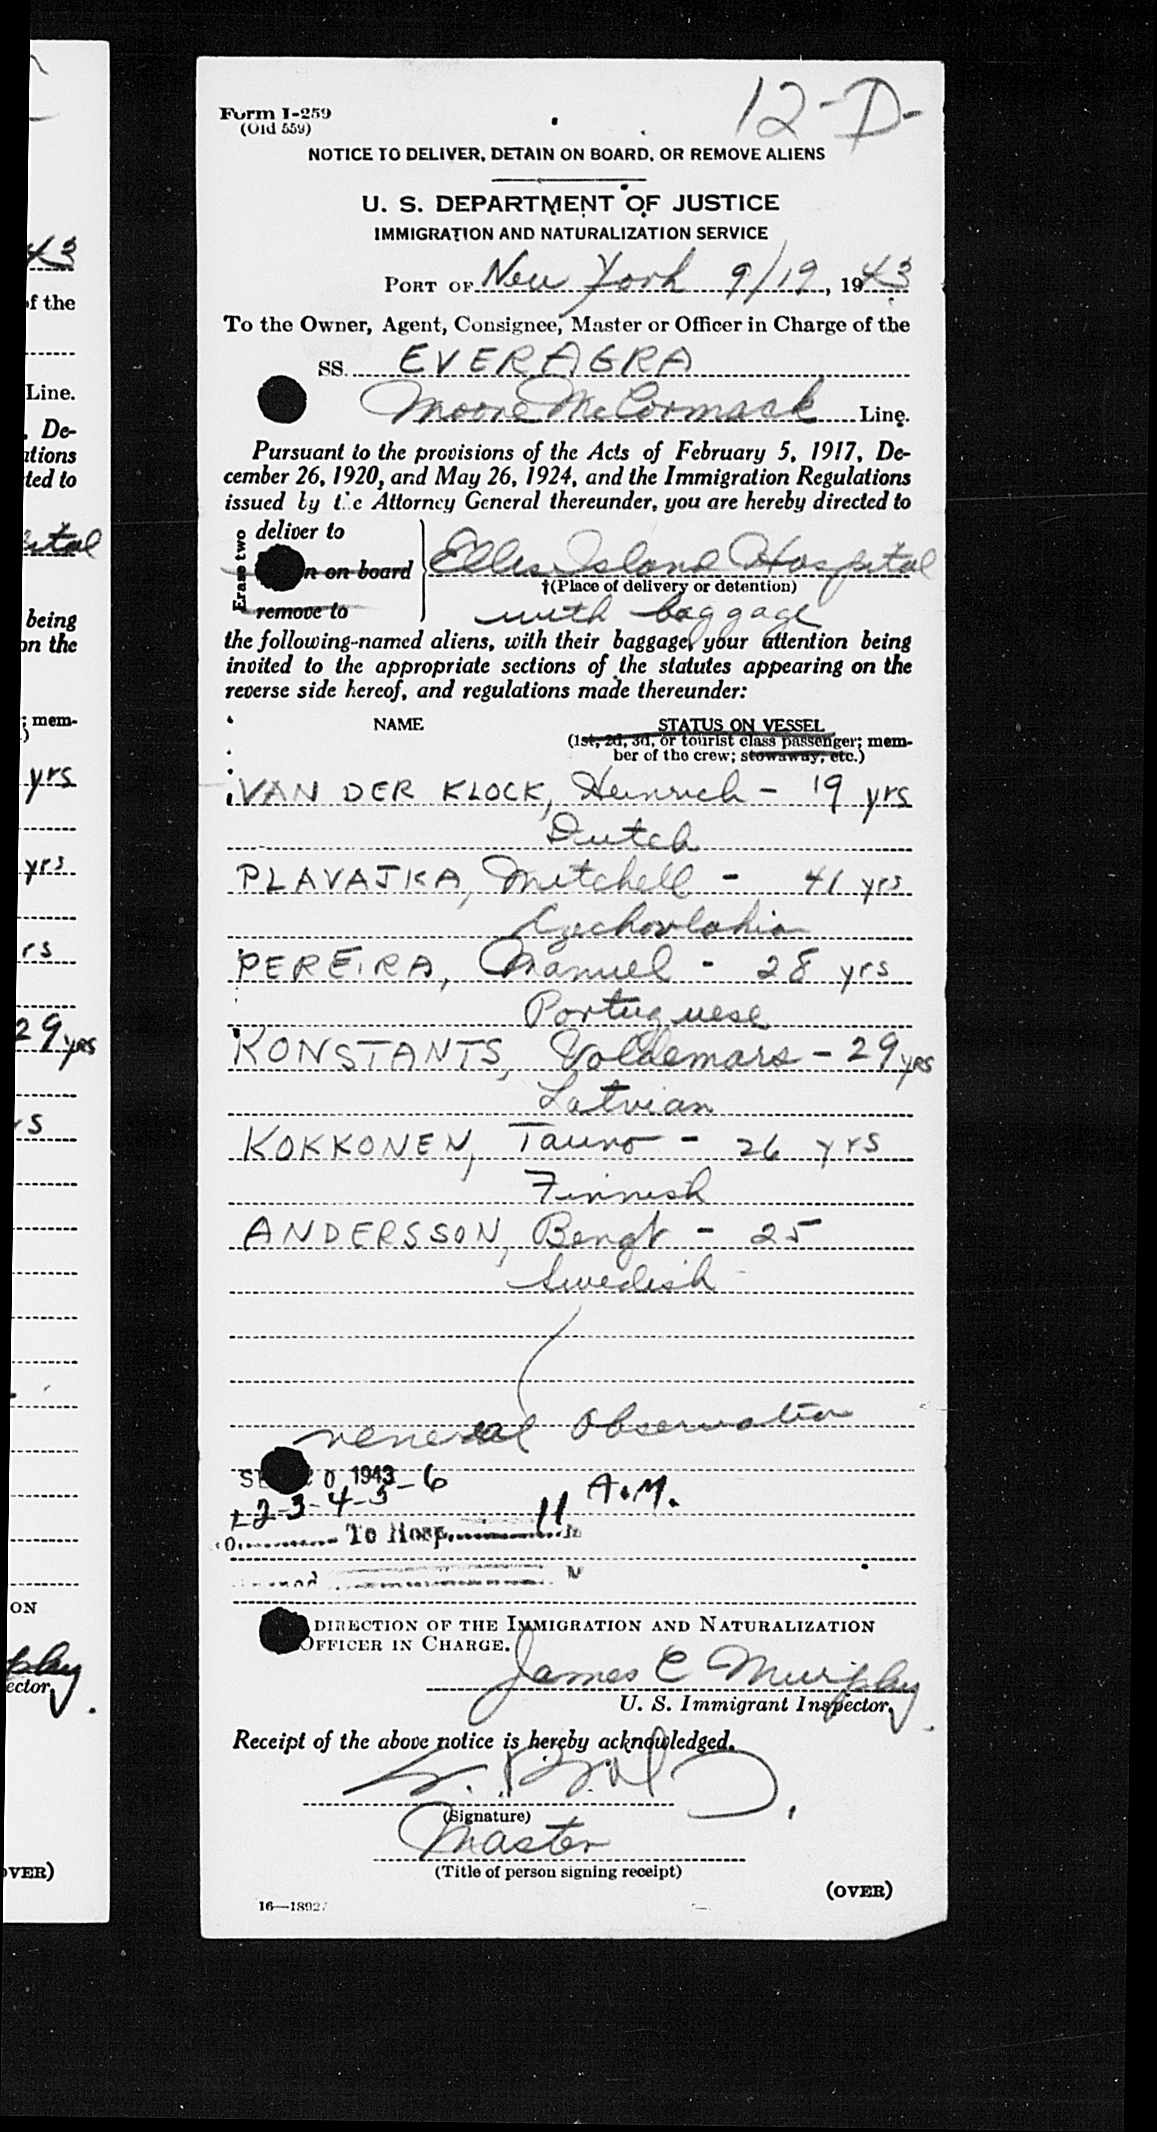 12-D-
Form I-259
(Old 559)
NOTICE TO DELIVER, DETAIN ON BOARD, OR REMOVE ALIENS
U. S. DEPARTMENT OF JUSTICE
IMMIGRATION AND NATURALIZATION SERVICE
PORT OF New York 9/19, 1943
To the Owner, Agent, Consignee, Master or Officer in Charge of the
SS. EVERAGRA
Moore McCormack Line.
Pursuant to the provisions of the Acts of February 5, 1917, De-
cember 26, 1920, and May 26, 1924, and the Immigration Regulations
issued by the Attorney General thereunder, you are hereby directed to
Erase two
deliver to
n on board
remove to
Ellis Island Hospital
†(Place of delivery or detention)
with baggage
the following-named aliens, with their baggage, your attention being
invited to the appropriate sections of the statutes appearing on the
reverse side hereof, and regulations made thereunder:
NAME STATUS ON VESSEL
(1st, 2d, 3d, or tourist class passenger; mem-
ber of the crew; stowaway, etc.)
VAN DER KLOCK, Heinrich - 19 yrs
Dutch
PLAVAJKA, Mitchell - 41 yrs
PEREIRA, Manuel - 28 yrs
Portuguese
KONSTANTS, Voldemars - 29 yrs
Latvian
KOKKONEN, Tauno - 26 yrs
Finnish
ANDERSSON, Bengt - 25
Swedish
venereal Observation
0 1943 - 6
1-2-3-4-5 A.M.
To Hosp. 11
DIRECTION OF THE IMMIGRATION AND NATURALIZATION
OFFICER IN CHARGE.
James C Murphy
U. S. Immigrant Inspector.
Receipt of the above notice is hereby acknowledged.
(Signature)
Master
(Title of person signing receipt)
(OVER)
16—18927
43
of the
Line.
De-
ations
ted to
being
on the
; mem-
yrs
yrs
rs
29 yrs
s
ON
phy
ector.
OVER)